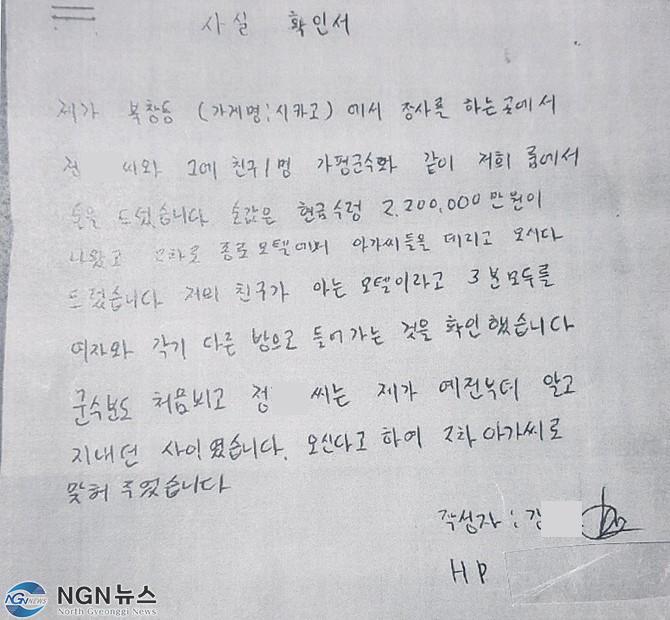 사실 확인서
제가 북창동 (가게명:시카고) 에서 장사를 하는곳에서
정 씨와 그에 친구1명 가평군수와 같이 저희 룸에서
술을 드셨습니다. 술값은 현금수령 2.200,000만원이
나왔고 2차로 종로모텔에서 아가씨들을 데리고 모시다
드렸습니다 저의 친구가 아는 모텔이라고 3분모두를
여자와 각기 다른 방으로 들어가는 것을 확인했습니다
군수분도 처음뵈고 정 씨는 제가 예전부터 알고
지내던 사이였습니다. 오신다고 하여 2차아가씨로
맞혀 주었습니다
작성자 : 김
HP
NGN뉴스
North Gyeonggi News